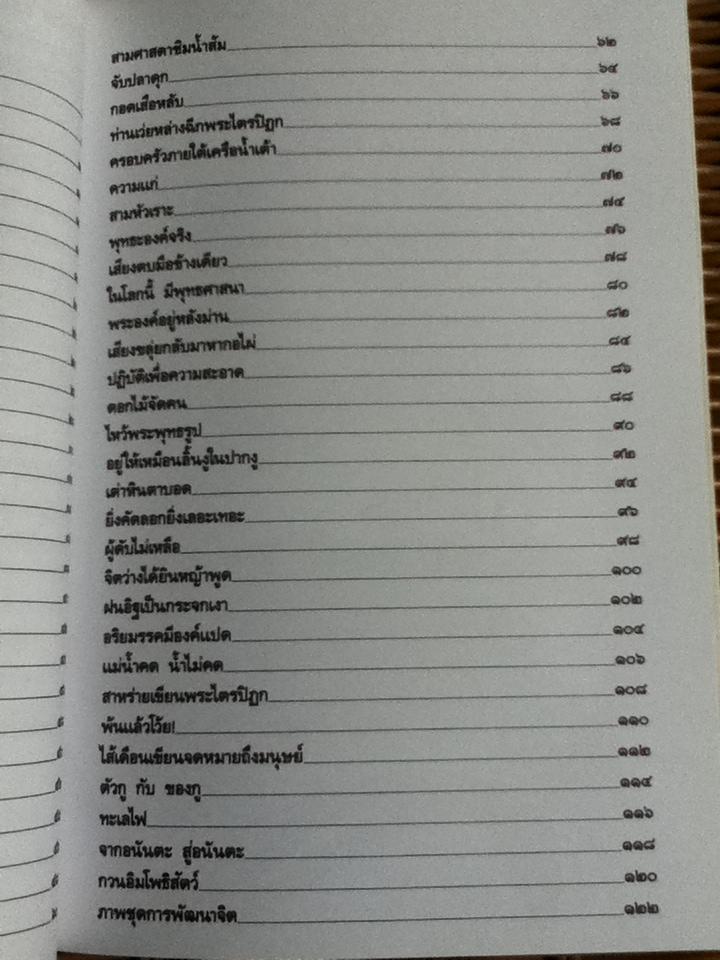 สามศาสดาชิมน้ำส้ม ๖๒
จับปลาดุก ๖๔
กอดเสือหลับ ๖๖
ท่านเว่ยหล่างฉีกพระไตรปิฎก ๖๘
ครอบครัวภายใต้เครือน้ำเต้า ๗๐
ความแก่ ๗๒
สามหัวเราะ ๗๔
พุทธะองค์จริง ๗๖
เสียงตบมือข้างเดียว ๗๘
ในโลกนี้ มีพุทธศาสนา ๘๐
พระองค์อยู่หลังม่าน ๘๒
เสียงขลุ่ยกลับมาหากอไผ่ ๘๔
ปฏิบัติเพื่อความสะอาด ๘๖
ดอกไม้จัดคน ๘๘
ไหว้พระพุทธรูป ๙๐
อยู่ให้เหมือนลิ้นงูในปากงู ๙๒
เต่าหินตาบอด ๙๔
ยิ่งคัดลอกยิ่งเลอะเทอะ ๙๖
ผู้ดับไม่เหลือ ๙๘
จิตว่างได้ยินหญ้าพูด ๑๐๐
ฝนอิฐเป็นกระจกเงา ๑๐๒
อริยมรรคมีองค์แปด ๑๐๔
แม่น้ำคด น้ำไม่คด ๑๐๖
สาหร่ายเขียนพระไตรปิฎก ๑๐๘
พ้นแล้วโว้ย! ๑๑๐
ไส้เดือนเขียนจดหมายถึงมนุษย์ ๑๑๒
ตัวกู กับ ของกู ๑๑๔
ทะเลไฟ ๑๑๖
จากอนันตะ สู่อนันตะ ๑๑๘
กวนอิมโพธิสัตว์ ๑๒๐
ภาพชุดการพัฒนาจิต ๑๒๒